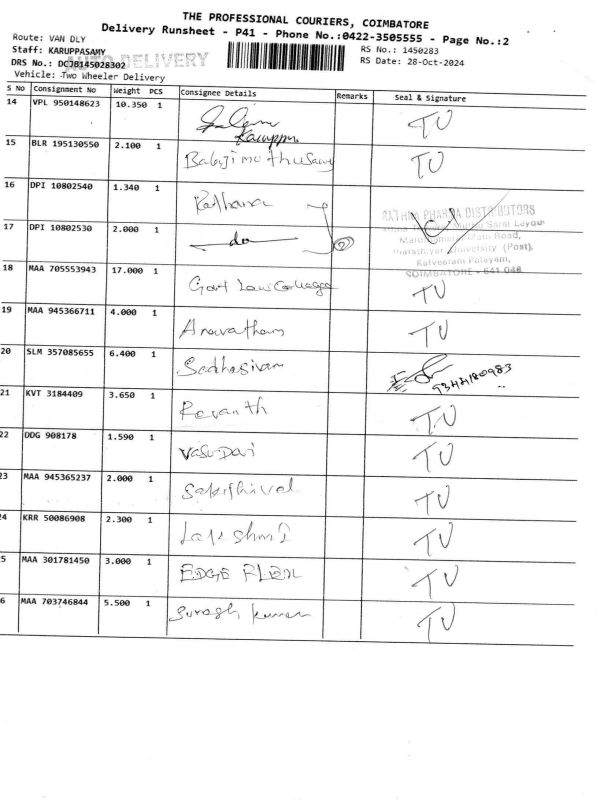 THE PROFESSIONAL COURIERS, COIMBATORE
Delivery Runsheet - P41 - Phone No.:0422-3505555 - Page No.:2
Route: VAN DLY
RS No.: 1450283
Staff: KARUPPASAMY
RS Date: 28-Oct-2024
DRS No.: DCJB145028302
AUTO DELIVERY
Vehicle: Two Wheeler Delivery
S No Consignment No Weight PCS Consignee Details Remarks Seal & Signature
14 VPL 950148623 10.350 1 TU
15 BLR 195130550 2.100 1 Balajimuthusamy TU
16 DPI 10802540 1.340 1 Rathana
17 DPI 10802530 2.000 1 do
RATHNA PHARMA DISTRIBUTORS
Road,
University (Post),
Kalveeram Palayam,
COIMBATORE - 641 046
18 MAA 705553943 17.000 1 Govt Law College TU
19 MAA 945366711 4.000 1 TU
20 SLM 357085655 6.400 1 Sadhasivam 9344180983
21 KVT 3184409 3.650 1 Revanth TU
22 DDG 908178 1.590 1 Vasu Davi TU
23 MAA 945365237 2.000 1 Sakthivel TU
24 KRR 50086908 2.300 1 Lakshmi TU
5 MAA 301781450 3.000 1 EDGE TU
6 MAA 703746844 5.500 1 Suresh kumar TU